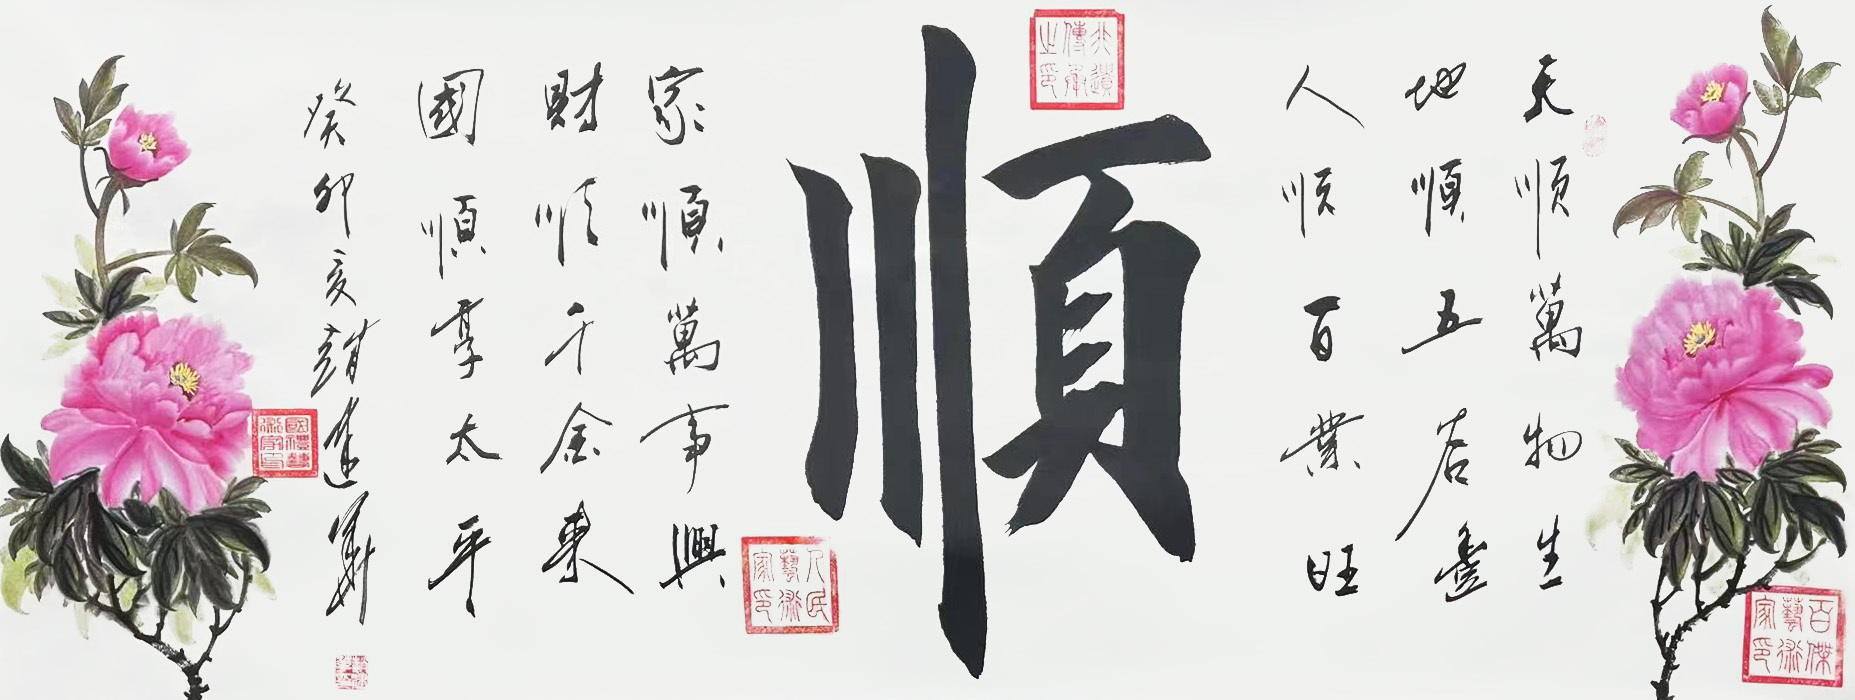 天順萬物生
地順五谷豐
人順百業旺
非遺傳承之印
順
家順萬事興
財順千金來
國順享太平
癸卯
人民藝術家印
國禮藝術家印
百傑藝術家印